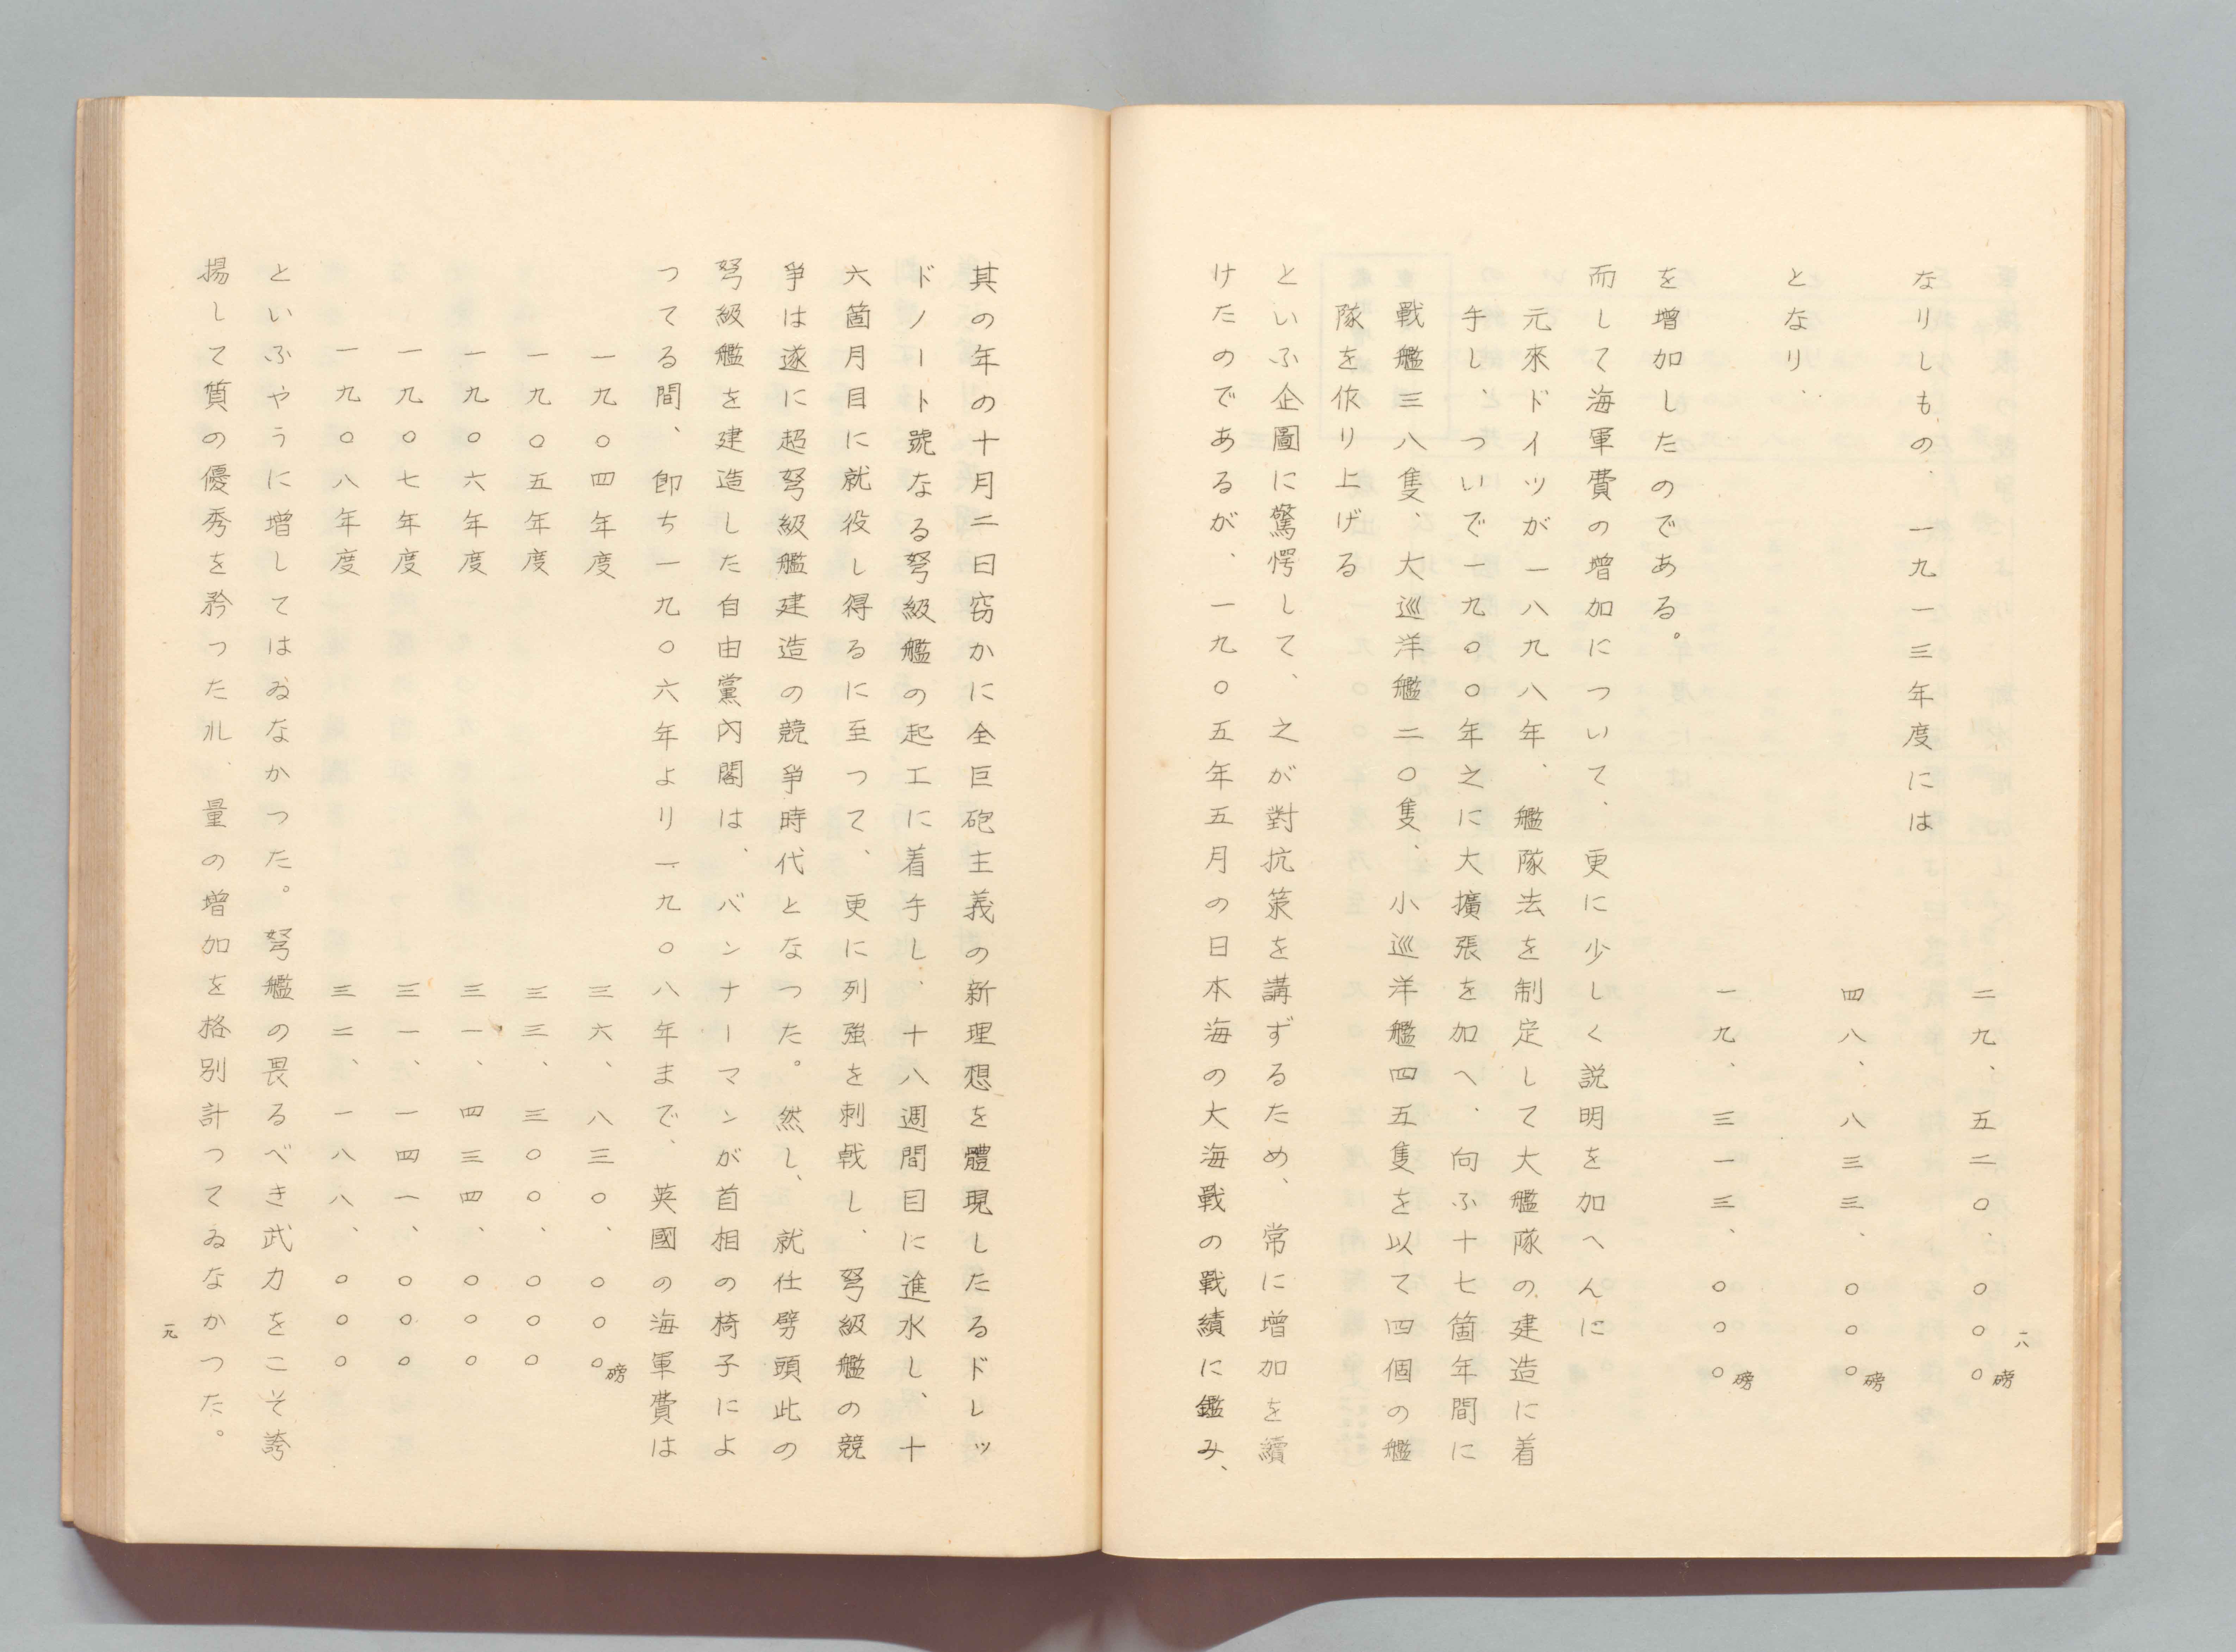 二九、五二〇、〇〇〇磅
なりしもの、一九一三年度には
四八、八三三、〇〇〇磅
となり、
一九、三一三、〇〇〇磅
を増加したのである。
而して海軍費の増加について、更に少しく説明を加へんに
元來ドイツが一八九八年、艦隊法を制定して大艦隊の建造に着
手し、ついで一九〇〇年之に大擴張を加へ、向ふ十七箇年間に
戰艦三八隻、大巡洋艦二〇隻、小巡洋艦四五隻を以て四個の艦
隊を作り上げる
といふ企圖に驚愕して、之が對抗策を講ずるため、常に增加を續
けたのであるが、一九〇五年五月の日本海の大海戰の戰績に鑑み、
一八
其の年の十月二日窃かに全巨砲主義の新理想を體現したるドレッ
ドノート號なる弩級艦の起工に着手し、十八週間目に進水し、十
六箇月目に就役し得るに至つて、更に列強を刺戟し、弩級艦の競
爭は遂に超弩級艦建造の競爭時代となつた。然し、就任劈頭此の
弩級艦を建造した自由黨內閣は、バンナーマンが首相の椅子によ
つてる間、卽ち一九〇六年より一九〇八年まで、英國の海軍費は
一九〇四年度 三六、八三〇、〇〇〇磅
一九〇五年度 三三、三〇〇、〇〇〇
一九〇六年度 三一、四三四、〇〇〇
一九〇七年度 三一、一四一、〇〇〇
一九〇八年度 三二、一八八、〇〇〇
といふやうに增してはゐなかつた。弩艦の畏るべき武力をこそ誇
揚して質の優秀を矜つたれ、量の増加を格別計つてゐなかつた。
一九